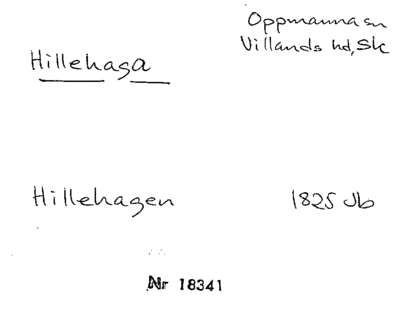 Hillehaga
Oppmanna sn
Villands hd, Sk
Hillehagen 1825 Jb
Nr 18341